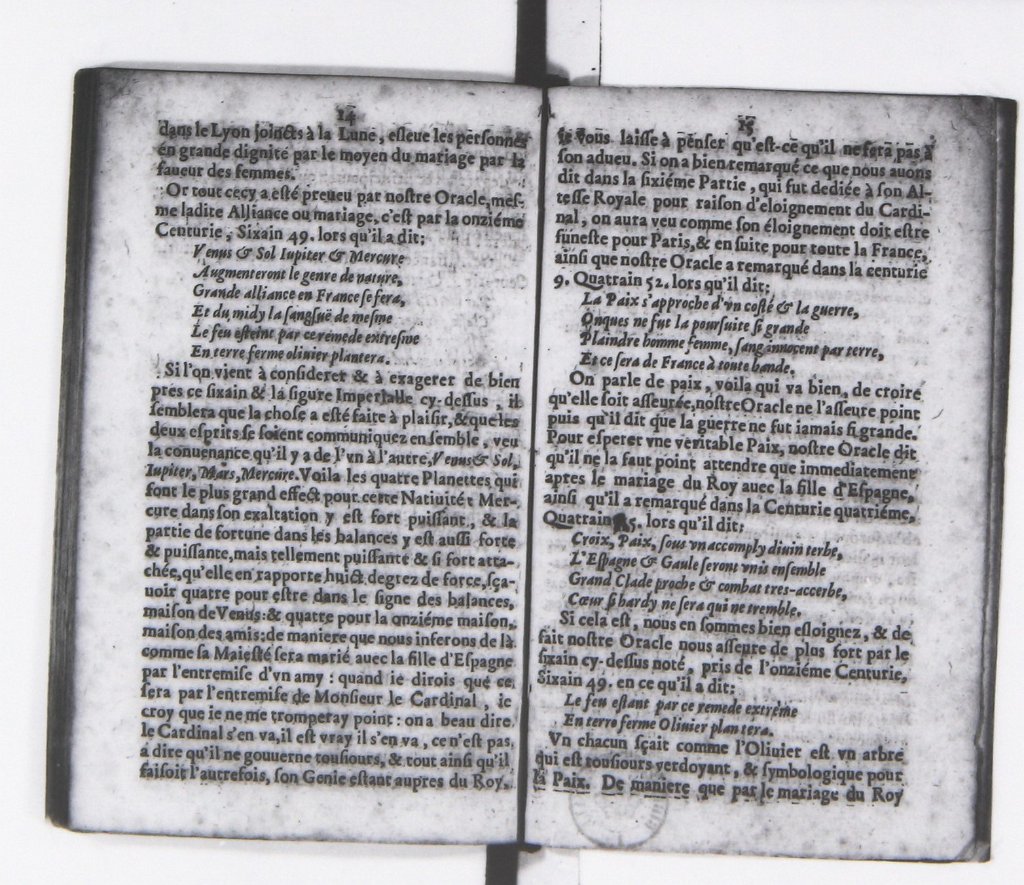 14
dans le Lyon joincts à la Lune, esleue les personnes
en grande dignité par le moyen du mariage par la
faueur des femmes.
Or tout cecy a esté preueu par nostre Oracle, mes-
me ladite Alliance ou mariage, c'est par la onziéme
Centurie, Sixain 49. lors qu'il a dit:
Venus & Sol Iupiter & Mercure
Augmenteront le genre de nature,
Grande alliance en France se fera,
Et du midy la sangsuë de mesme
Le feu esteint par ce remede extresme
En terre ferme oliuier plantera.
Si l'on vient à considerer & à exagerer de bien
prés ce sixain & la figure Imperialle cy-dessus, il
semblera que la chose a esté faite à plaisir, & que les
deux esprits se soient communiquez ensemble, veu
la conuenance qu'il y a de l'vn à l'autre, Venus & Sol,
Iupiter, Mars, Mercure. Voila les quatre Planettes qui
font le plus grand effect pour cette Natiuité: Mer-
cure dans son exaltation y est fort puissant, & la
partie de fortune dans les balances y est aussi forte
& puissante, mais tellement puissante & si fort atta-
chée, qu'elle en rapporte huict degrez de force, sça-
uoir quatre pour estre dans le signe des balances,
maison de Venus: & quatre pour la onziéme maison,
maison des amis: de maniere que nous inferons de là
comme sa Maiesté sera marié auec la fille d'Espagne
par l'entremise d'vn amy: quand ie dirois que ce
sera par l'entremise de Monsieur le Cardinal, ie
croy que ie ne me tromperay point: on a beau dire
le Cardinal s'en va, il est vray il s'en va, ce n'est pas
a dire qu'il ne gouuerne tousiours, & tout ainsi qu'il
faisoit l'autrefois, son Genie estant aupres du Roy.
15
ie vous laisse à penser qu'est-ce qu'il ne fera pas à
son adueu. Si on a bien remarqué ce que nous auons
dit dans la sixiéme Partie, qui fut dediée à son Al-
tesse Royale pour raison d'eloignement du Cardi-
nal, on aura veu comme son éloignement doit estre
funeste pour Paris, & en suite pour toute la France,
ainsi que nostre Oracle a remarqué dans la centurie
9. Quatrain 52. lors qu'il dit:
La Paix s'approche d'vn costé & la guerre,
Onques ne fut la poursuite si grande
Plaindre homme femme, sang innocent par terre,
Et ce sera de France à toute bande.
On parle de paix, voila qui va bien, de croire
qu'elle soit asseurée, nostre Oracle ne l'asseure point
puis qu'il dit que la guerre ne fut iamais si grande.
Pour esperer vne veritable Paix, nostre Oracle dit
qu'il ne la faut point attendre que immediatement
apres le mariage du Roy auec la fille d'Espagne,
ainsi qu'il a remarqué dans la Centurie quatriéme,
Quatrain 5. lors qu'il dit:
Croix, Paix, sous vn accomply diuin verbe,
L'Espagne & Gaule seront vnis ensemble
Grand Clade proche & combat tres-accerbe,
Cœur si hardy ne sera qui ne tremble.
Si cela est, nous en sommes bien esloignez, & de
fait nostre Oracle nous asseure de plus fort par le
sixain cy-dessus noté, pris de l'onziéme Centurie,
Sixain 49. en ce qu'il a dit:
Le feu estant par ce remede extrème
En terre ferme Oliuier plantera.
Vn chacun sçait comme l'Oliuier est vn arbre
qui est tousiours verdoyant, & symbologique pour
la Paix. De maniere que par le mariage du Roy